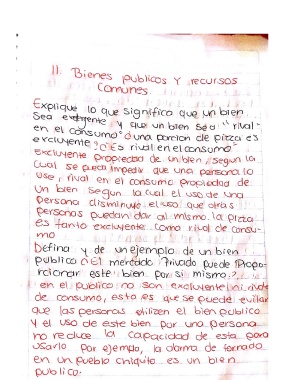 11 Bienes publicos y recursos
Comunes
Explique lo que significa que un bien
Sea excluyente y que un bien sea "rival
en el consumo" ¿una porcion de pizza es
excluyente? ¿es rival en el consumo
excluyente propiedad de un bien, segun la
cual se pueda impedir que una persona lo
use, rival en el consumo propiedad de
un bien segun la cual el uso de una
persona disminuye el uso que otras
personas puedan dar al mismo. la pizza
es tanto excluyente como rival de consu-
mo
Defina y de un ejemplo de un bien
publico ¿El mercado Privado puede Propo-
rcionar este bien por si mismo?
en el publico no son excluyente ni rivale
de consumo, esto es que se puede evitar
que las personas utilizen el bien publico
y el uso de este bien por una persona
no reduce la capacidad de esta para
usarlo por ejemplo, la alarma de tornado
en un pueblo chiquito es un bien
publico.